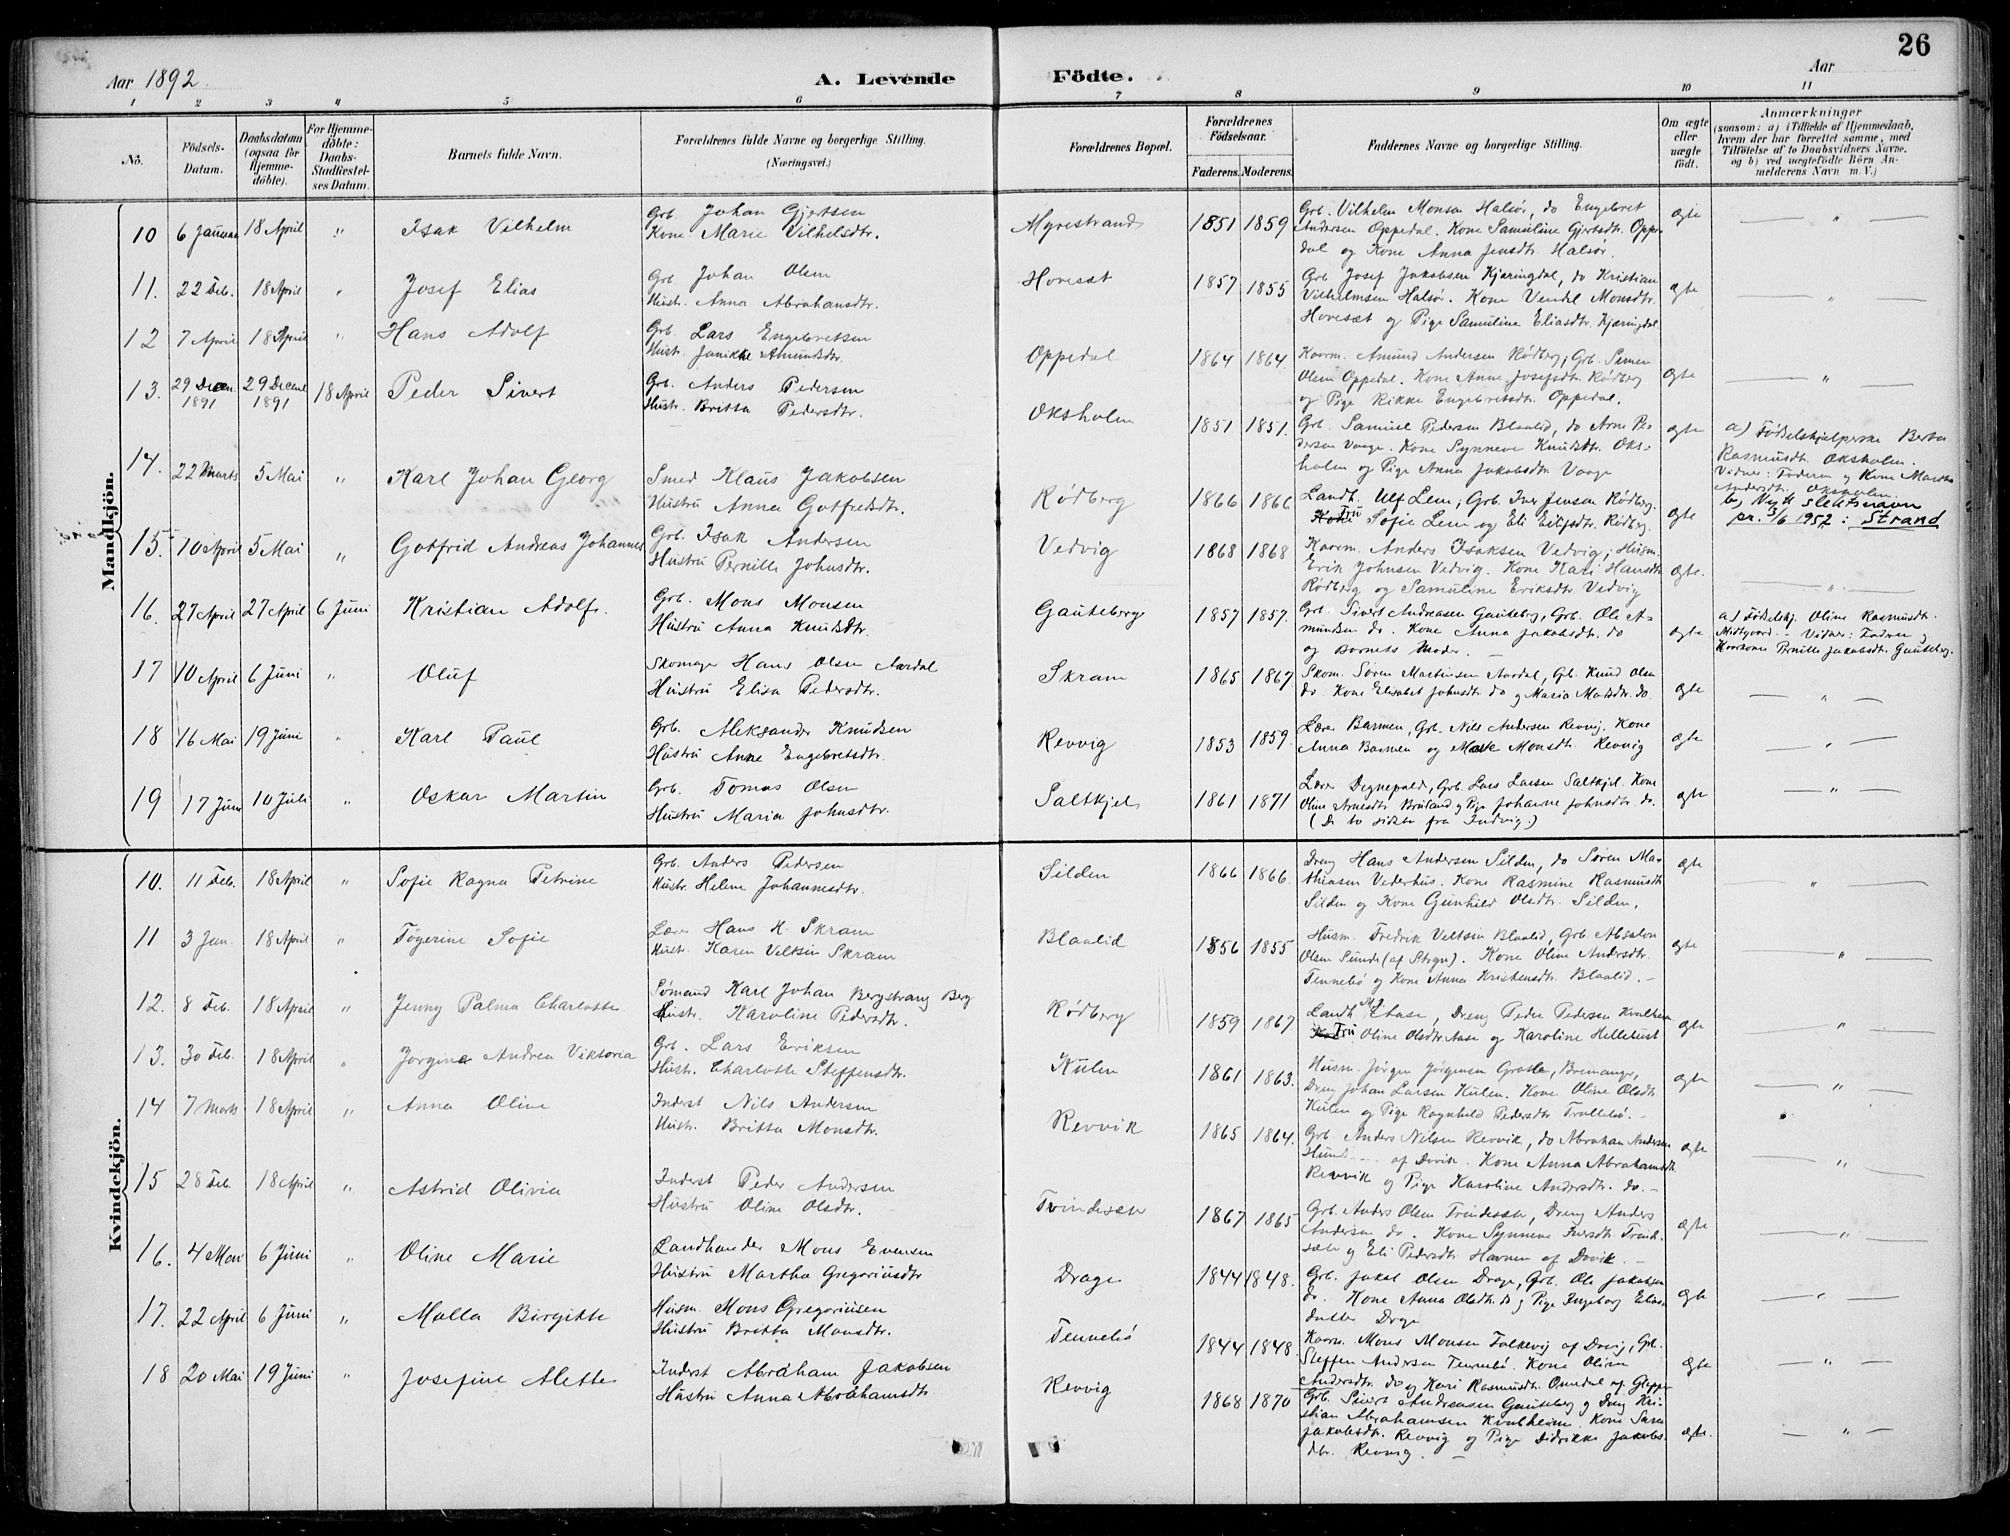 26
Aar 1892
A. Levende Födte.
Aar
1 2 3 4 5 6 7 8 9 10 11
No.
Födsels-Datum.
Daabsdatum (ogsaa för Hjemme-döbte).
For Hjemme-döbte: Daabs-Stadfæstel-ses Datum.
Barnets fulde Navn.
Forældrenes fulde Navne og borgerlige Stilling. (Næringsvei.)
Forældrenes Bopæl.
Forældrenes Födselsaar.
Faderens. Moderens.
Faddernes Navne og borgerlige Stilling.
Om ægte eller uægte födt.
Anmærkninger
(saasom: a) i Tilfælde af Hjemmedaab, hvem der har forrettet samme, med Tilföielse af to Daabsvidners Navne, og b) ved uægtefödte Börn Anmelderens Navn m. V.)
Mandkjön.
10 6 Januar 18 April " Isak Vilhelm
Grb. Johan Gjertsen
Kone Marie Vilhelsdtr.
Myrestrand 1851 1859
Grb. Vilhelm Monsen Halsør, do Engebret
Andersen Oppedal. Kone Samuline Gjertsdtr. Oppe-
dal og Kone Anna Jensdtr. Halsør.
ægte "
11. 22 Feb. 18 April " Josef Elias
Grb. Johan Olsen
Hustr. Anna Abrahamsdtr.
Hovesæt 1857 1855
Grb. Josef Jakobsen Kjæringdal, do Kristian
Vilhelmsen Halsør. Kone Vendel Monsdtr.
Hovesæt og Pige Samuline Eliasdtr. Kjæringdal
ægte "
12 7 April 18 April " Hans Adolf
Grb. Lars Engebretsen
Hustr. Janikke Amundsdtr.
Oppedal 1864 1864.
Kaarm. Amund Andersen Rødberg, Grb. Semen
Olsen Oppedal. Kone Anne Josefsdtr. Rødberg
og Pige Rikke Engebretsdtr. Oppedal.
ægte "
13. 29 Decem. 1891 29 Decemb 1891 18 April Peder Sivert
Grb. Anders Pedersen
Hustr. Britta Pedersdtr.
Oksholm 1851 1851.
Grb. Samuel Pedersen Blaalid, do Arne Pe-
dersen Vaage. Kone Synneve Knudsdtr. Oks-
holm og Pige Anna Jakobsdtr. Vaage
ægte
a) Fødselshjælperske Berta
Rasmusdtr. Oksholm.
Vidner: Faderen og Kone Martha
Andersdtr. Oksholm
14. 22 Marts 5 Mai " Karl Johan Georg
Smed Klaus Jakobsen
Hustru Anna Gotfredsdtr.
Rødberg 1866 1866
Landh. Ulf Lem, Grb. Iver Jensen Rødberg.
Fru Sofie Lem og Eli Eilifsdtr. Rødberg.
ægte
b) Nytt slektsnavn
pr. 3/6 1957: Strand
15. 10 April 5 Mai " Gotfrid Andreas Johannes
Grb. Isak Andersen
Hustru Pernille Johnsdtr.
Vedvig 1868 1868
Kaarm. Anders Isaksen Vedvig, Husm.
Erik Johnsen Vedvig. Kone Kari Hansdtr.
Rødberg og Samuline Eriksdtr. Vedvig
ægte. "
16. 27 April 27 April 6 Juni Kristian Adolf.
Grb. Mons Monsen
Hustru Anna Knudsdtr.
Gauteberg 1857 1857.
Grb. Sivert Andreasen Gauteberg, Grb. Ole A-
mundsen do. Kone Anna Jakobsdtr. do
og Barnets Moder.
ægte
a) Fødselshj. Oline Rasmusdtr.
Midtgaard. - Vidner: Faderen og
Kaarkone Pernille Jakobsdtr. Gauteberg.
17 10 April 6 Juni " Oluf
Skomager Hans Olsen Aardal
Hustru Elisa Pedersdtr.
Skram 1865 1867
Skom. Søren Martinsen Aardal, Gb. Knud Olsen
do. Kone Elisabet Johnsdtr. do og Maria Matsdtr. do.
ægte "
18 16 Mai 19 Juni " Karl Paul
Grb. Aleksander Knudsen
Hustru Anne Engebretsdtr.
Revvig 1853 1859.
Lærer Barmen, Grb. Nils Andersen Revvig. Kone
Anna Barmen og Monsdtr. Revvig
ægte "
19 17 Juni 10 Juli " Oskar Martin
Grb. Tomas Olsen
Hustru Maria Johnsdtr.
Saltkjel 1861 1871
Lærer Degnepold, Grb. Lars Larsen Saltkjel. Kone
Oline Arnesdtr. Bruland og Pige Johanne Johnsdtr. do.
(De to sidste fra Indvig.)
ægte "
Kvindekjön.
10. 11 Feb. 18 April " Sofie Ragna Petrine
Grb. Anders Pedersen
Hustr. Helene Johannesdtr.
Silden 1866 1866.
Dreng Hans Andersen Silden, do Søren Ma-
thiasen Vederhus. Kone Rasmine Rasmusdtr.
Silden og Kone Gunhild Olsdtr. Silden.
ægte "
11 3 Jan. 18 April " Tøgerine Sofie
Lærer Hans H. Skram
Hustr. Karen Veltsin Skram
Blaalid 1856 1855
Husm. Fredrik Veltsin Blaalid, Grb. Absalon
Olsen Sunde (af Stryn). Kone Oline Andersdtr.
Tennebø og Kone Anna Kristensdtr. Blaalid.
ægte "
12. 8 Feb. 18 April " Jenny Palma Charlotte
Sømand Karl Johan Bergstrang Berg
Hustr. Karoline Pedersdtr.
Rødberg 1859 1867
Landh. Aase, Dreng Peder Pedersen Kvalheim
Fru Oline Olsdtr. Aase og Karoline Hellebust
ægte "
13. 30 Feb. 18 April " Jorgine Andrea Viktoria
Grb. Lars Eriksen
Hustr. Charlotte Steffensdtr.
Kulen 1861 1863.
Husm. Jørgen Jørgensen Grotle, Bremanger,
Dreng Johan Larsen Kulen. Kone Oline Olsdtr.
Kulen og Pige Ragnhild Pedersdtr. Trollebø.
ægte "
14 7 Marts 18 April " Anna Oline
Inderst Nils Andersen
Hustr. Britta Monsdtr.
Revvik 1865 1864.
Grb. Anders Nilsen Revvik, do Abraham Andersen
Hund af Dovik. Kone Anna Abrahamsdtr.
Revvik og Pige Karoline Andersdtr. do.
ægte "
15 28 Feb. 18 April " Astrid Olivia
Inderst Peder Andersen
Hustru Oline Olsdtr.
Tvindesæter 1867 1865
Grb. Anders Olsen Tvindesæter, Dreng Anders
Andersen do. Kone Synneve Iversdtr. Tvinde-
sæter og Eli Pedersdtr. Havnen af Dovik.
ægte "
16. 4 Mai 6 Juni " Oline Marie
Landhandler Mons Evensen
Hustru Martha Gregoriusdtr
Drage 1844 1848.
Grb. Jakob Olsen Drage, Grb. Ole Jakobsen
do. Kone Anna Olsdtr. do og Pige Ingeborg Elias-
datter Drage
ægte "
17. 22 April 6 Juni " Malla Birgitte
Husm. Mons Gregoriusen
Hustru Britta Monsdtr.
Tennebø 1844 1848
Kaarm. Mons Monsen Falkevig af Dovig, Grb.
Steffen Andersen Tennebø. Kone Oline
Andersdtr. do og Kari Rasmusdtr. Omedal af Glopp.
ægte "
18 20 Mai 19 Juni " Josefine Alette
Inderst Abraham Jakobsen
Hustru Anna Abrahamsdtr
Revvig 1868 1870
Grb. Sivert Andreasen Gauteberg og Dreng Kri-
stian Abrahamsen Kvalheim. Kone Sara
Jakobsdtr. Revvig og Pige Didrikke Jakobs-
dtr. Revvig.
ægte. "